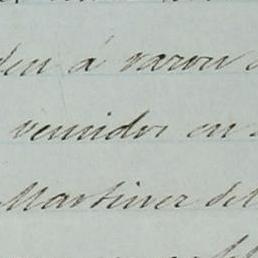 den á varon
venidos en
Martinez del